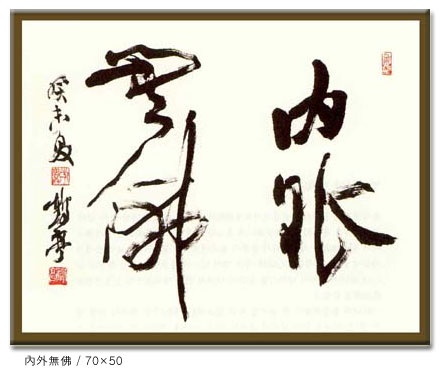 内外
無佛
癸未夏
內外無佛 / 70×50